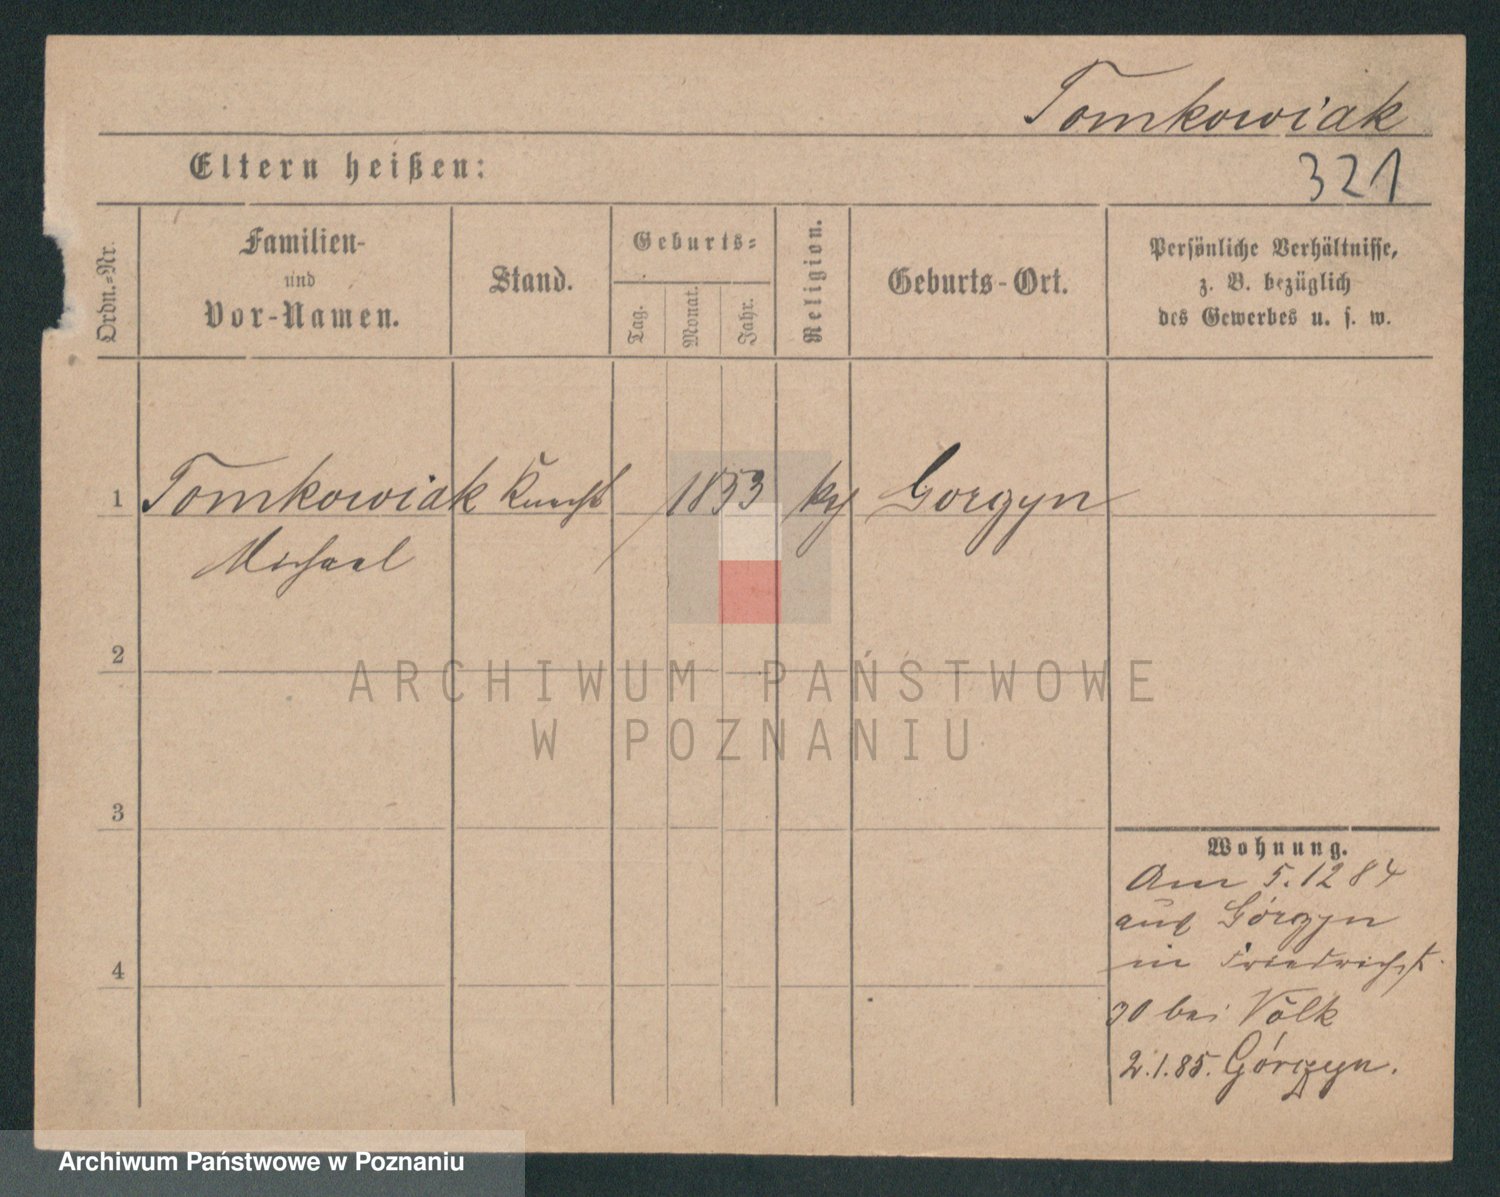 Tomkowiak
Eltern heißen:
321
Ordn.-Nr.
Familien-
und
Vor-Namen.
Stand.
Geburts-
Tag.
Monat.
Jahr.
Religion.
Geburts-Ort.
Persönliche Verhältnisse,
z. B. bezüglich
des Gewerbes u. s. w.
1 Tomkowiak Knecht 1853 Gorczyn
Michael
2
ARCHIWUM PAŃSTWOWE
W POZNANIU
3
Wohnung.
Am 5.12 84
aus Górczyn
in Friedrichst.
30 bei Volk
4
2.1.85. Górczyn.
Archiwum Państwowe w Poznaniu